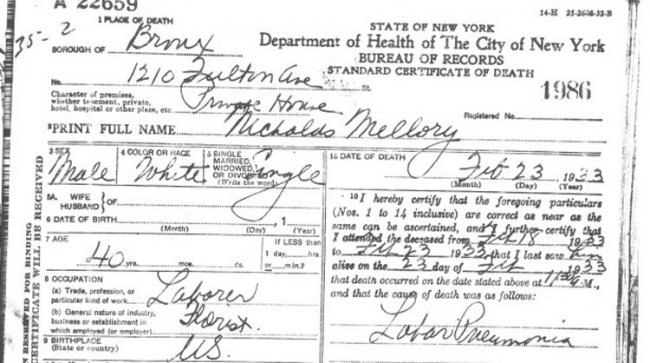 A 22659
14-H 25-2608-32-B
1 PLACE OF DEATH
STATE OF NEW YORK
35-2
BOROUGH OF Bronx
Department of Health of The City of New York
BUREAU OF RECORDS
STANDARD CERTIFICATE OF DEATH
No. 1210 Fulton Ave St.
1986
Character of premises,
whether tenement, private,
hotel, hospital or other place, etc. Private House
Registered No.
PRINT FULL NAME Nicholas Mellory
3 SEX
Male
4 COLOR OR RACE
White
5 SINGLE
MARRIED,
WIDOWED
OR DIVORCED
(Write the word)
Single
15 DATE OF DEATH Feb 23 1933
(Month) (Day) (Year)
5A WIFE
HUSBAND } OF
6 DATE OF BIRTH , 1
(Month) (Day) (Year)
7 AGE
40 yrs. mos. ds.
If LESS than
1 day, hrs.
or min.?
8 OCCUPATION
(a) Trade, profession, or
particular kind of work Laborer
(b) General nature of industry,
business or establishment in
which employed (or employer) Florist
9 BIRTHPLACE
(State or country) US
16 I hereby certify that the foregoing particulars
(Nos. 1 to 14 inclusive) are correct as near as the
same can be ascertained, and I further certify that
I attended the deceased from Feb 18 1933
to Feb 23 1933, that I last saw him
alive on the 23 day of Feb 1933
that death occurred on the date stated above at M.,
and that the cause of death was as follows:
Lobar Pneumonia
RESERVED FOR BINDING
CERTIFICATE WILL BE RECEIVED